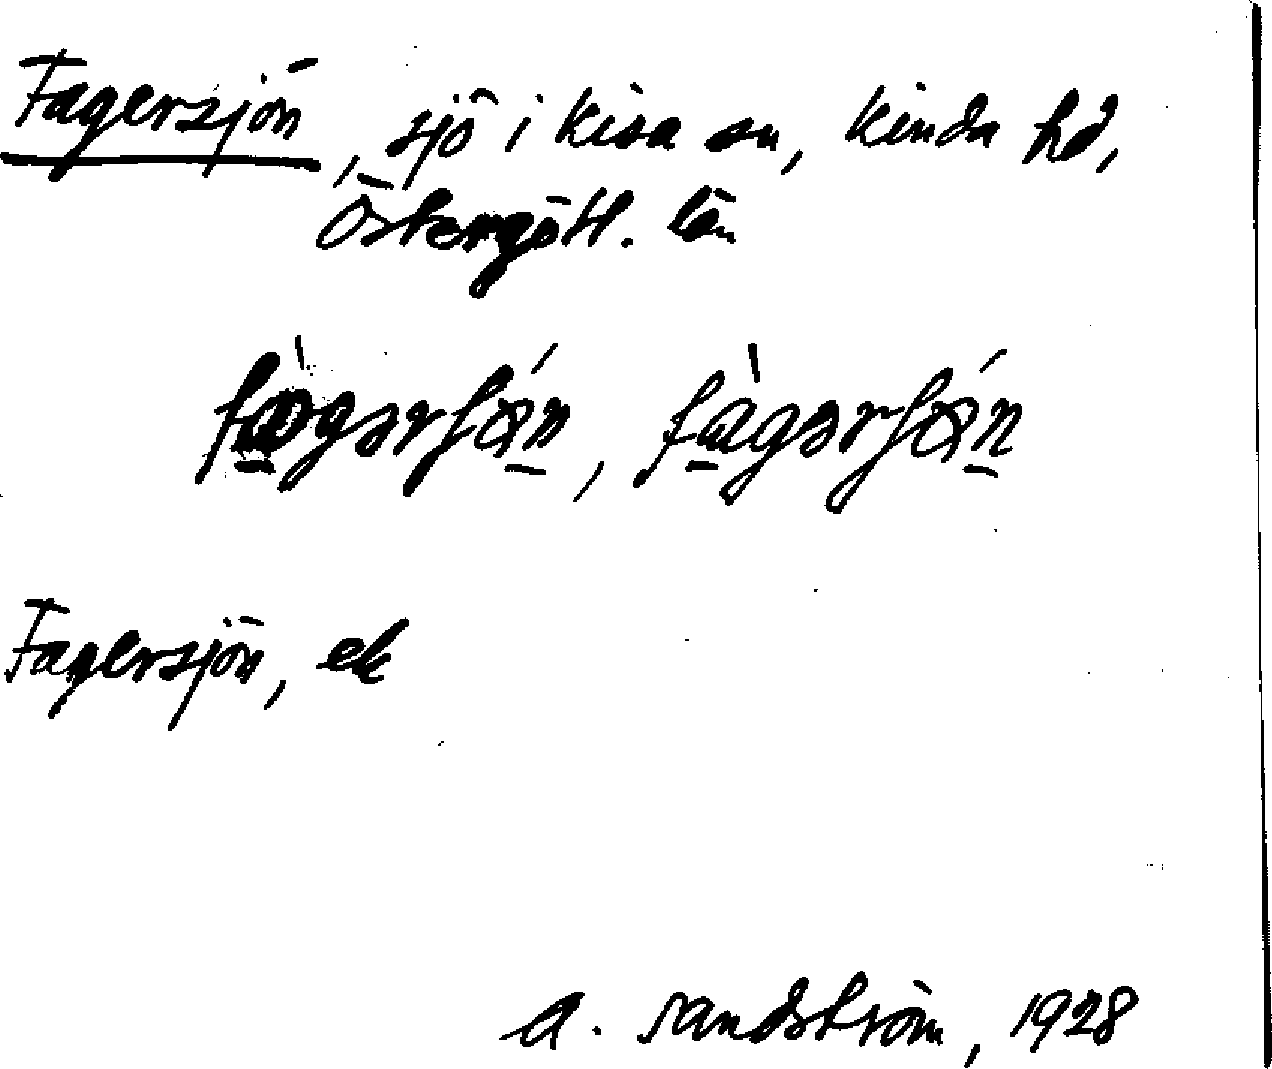 Fagersjön, sjö i Kisa sn, Kinda hd,
Östergötl. län
fàgərʃǿn, fàgərʃǿn
Fagersjön, ek
A. Sandström, 1928